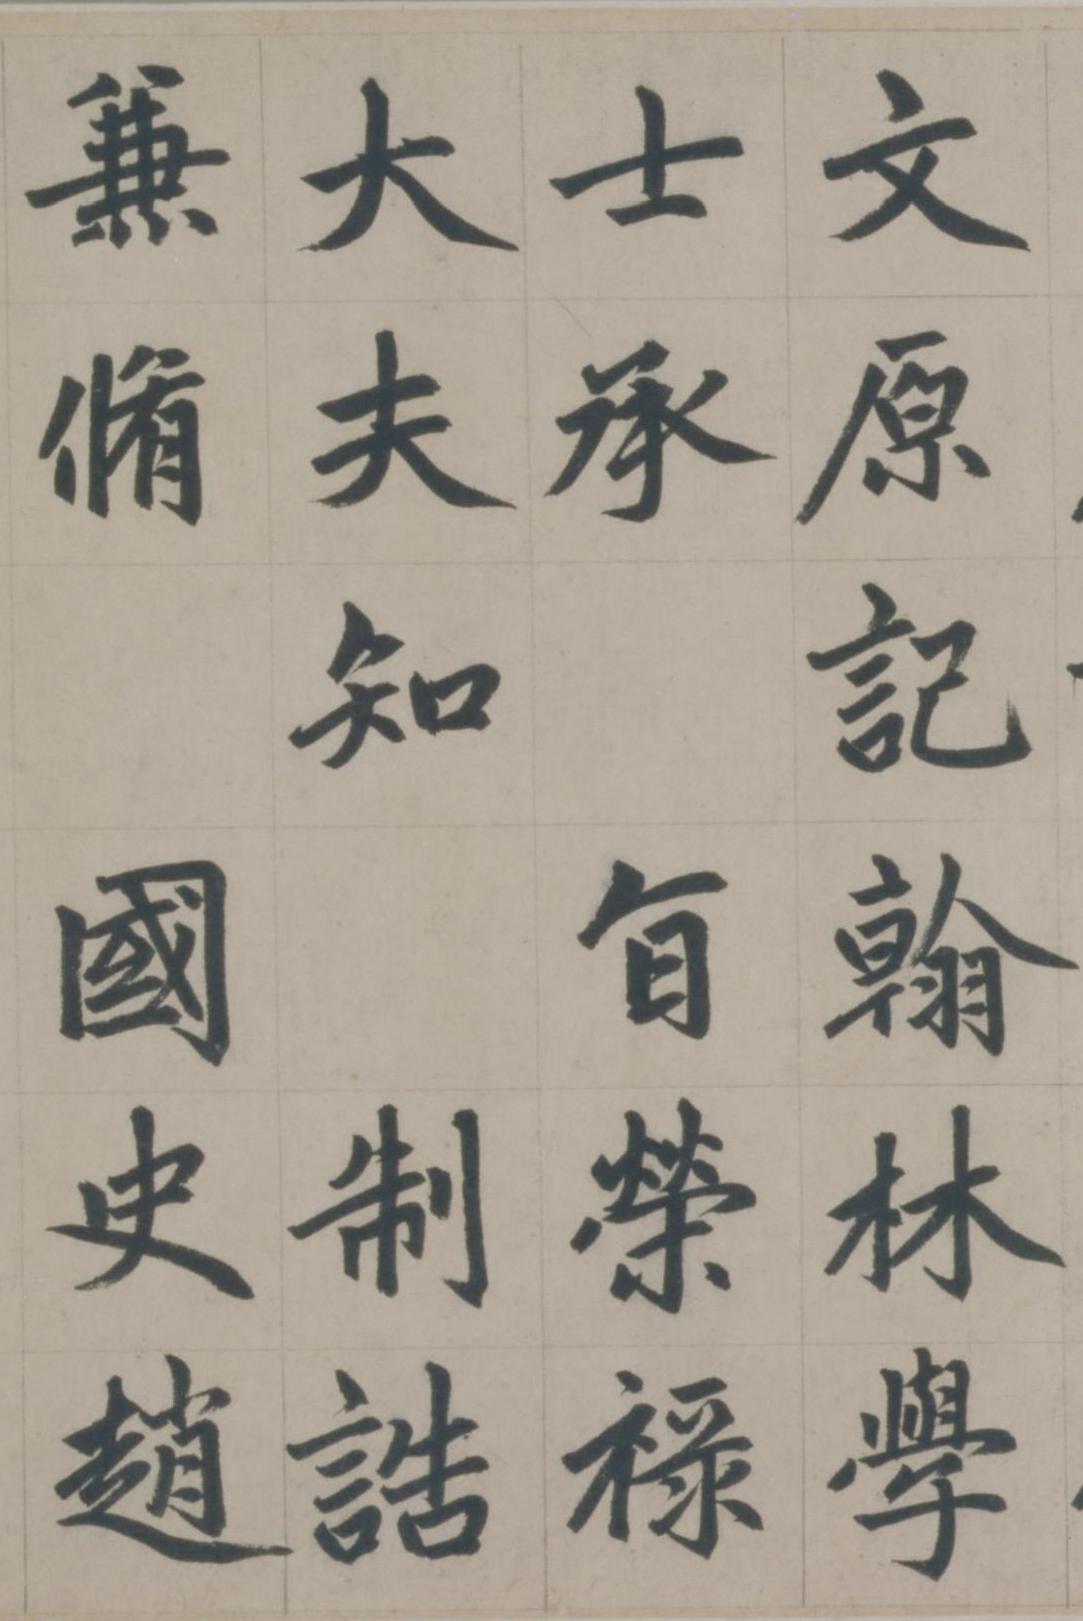 文原記翰林學
士承 旨榮祿
大夫知 制誥
兼脩 國史趙